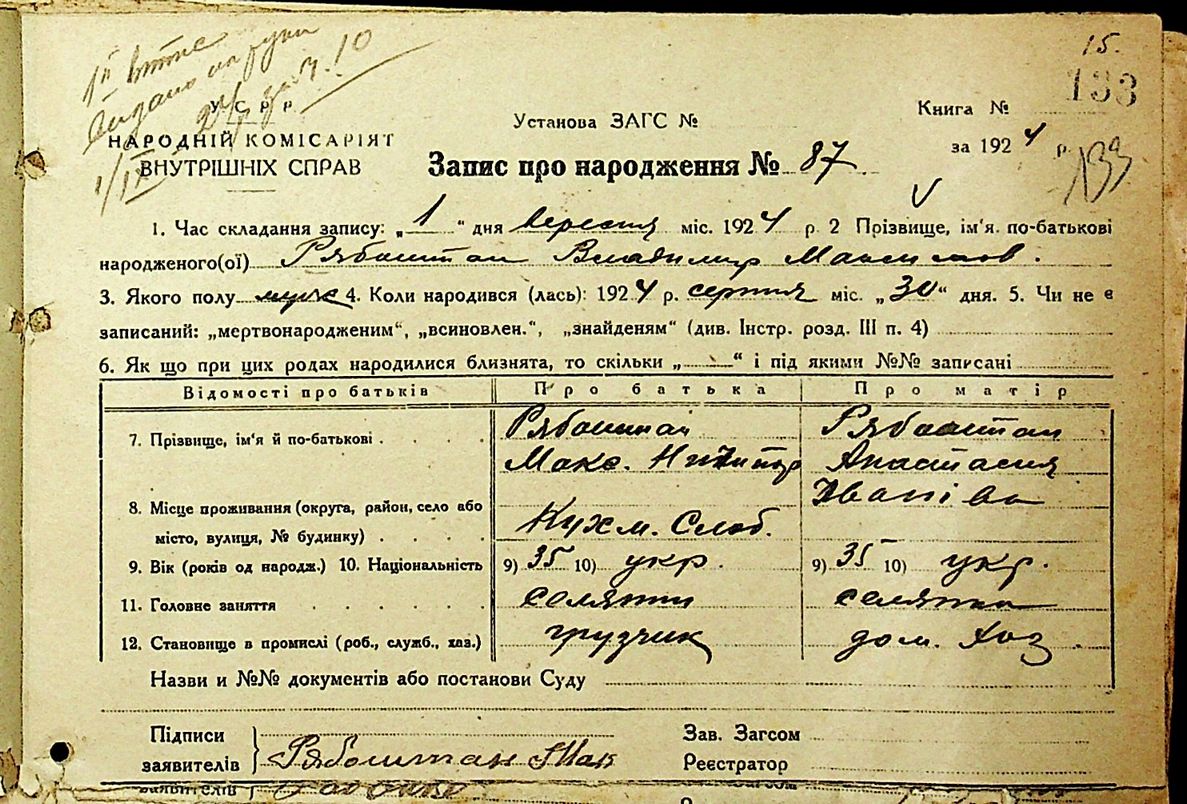 15.
133
1й витяг
видано на руки
24/ за № 10
1/IX
У С Р Р
НАРОДНІЙ КОМІСАРІЯТ
ВНУТРІШНІХ СПРАВ
Установа ЗАГС №
Книга №
за 1924 р.
133
Запис про народження № 87
1. Час складання запису: „1“ дня вересня міс. 1924 р 2 Прізвище, ім'я по-батькові
народженого(ої) Рябоштан Владимир Максимов.
3. Якого полу муж 4. Коли народився (лась): 1924 р. серпня міс. „30“ дня. 5. Чи не є
записаний: „мертвонародженим“, „всиновлен.“, „знайденям“ (див. Інстр. розд. III п. 4)
6. Як що при цих родах народилися близнята, то скільки „ “ і під якими №№ записані
Відомості про батьків Про батька Про матір
7. Прізвище, ім'я й по-батькові Рябоштан Рябоштан
Макс. Анастасия
Іванівн
8. Місце проживання (округа, район, село або
місто, вулиця, № будинку) Кухм. Слоб.
9. Вік (років од народж.) 10. Національність 9) 35 10) укр. 9) 35 10) укр.
11. Головне заняття селянин селянка
12. Становище в промислі (роб., служб., хаз.) грузчик дом. хоз.
Назви и №№ документів або постанови Суду
Підписи
заявителів } Рябоштан Мак
Зав. Загсом
Реєстратор
заявителів
Загсом